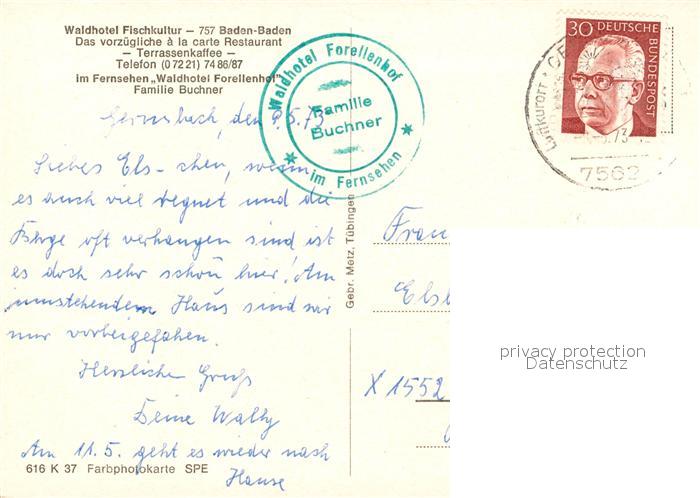 Waldhotel Fischkultur – 757 Baden-Baden
Das vorzügliche à la carte Restaurant
– Terrassenkaffee –
Telefon (0 72 21) 74 86/87
im Fernsehen „Waldhotel Forellenhof"
Familie Buchner
Waldhotel Forellenhof
Familie
Buchner
im Fernsehen
30 DEUTSCHE
BUNDESPOST
Luftkurort
73
7562
Gernsbach, den 9.5.73
Liebes Els-chen, wenn
es auch viel regnet und die
Berge oft verhangen sind, ist
es doch sehr schön hier! Am
umstehendem Haus sind wir
nur vorbeigefahren.
Herzliche Grüße
Deine Wally
Am 11.5. geht es wieder nach
Hause
Gebr. Metz, Tübingen
Frau
Els
X 1552
616 K 37 Farbphotokarte SPE
privacy protection
Datenschutz